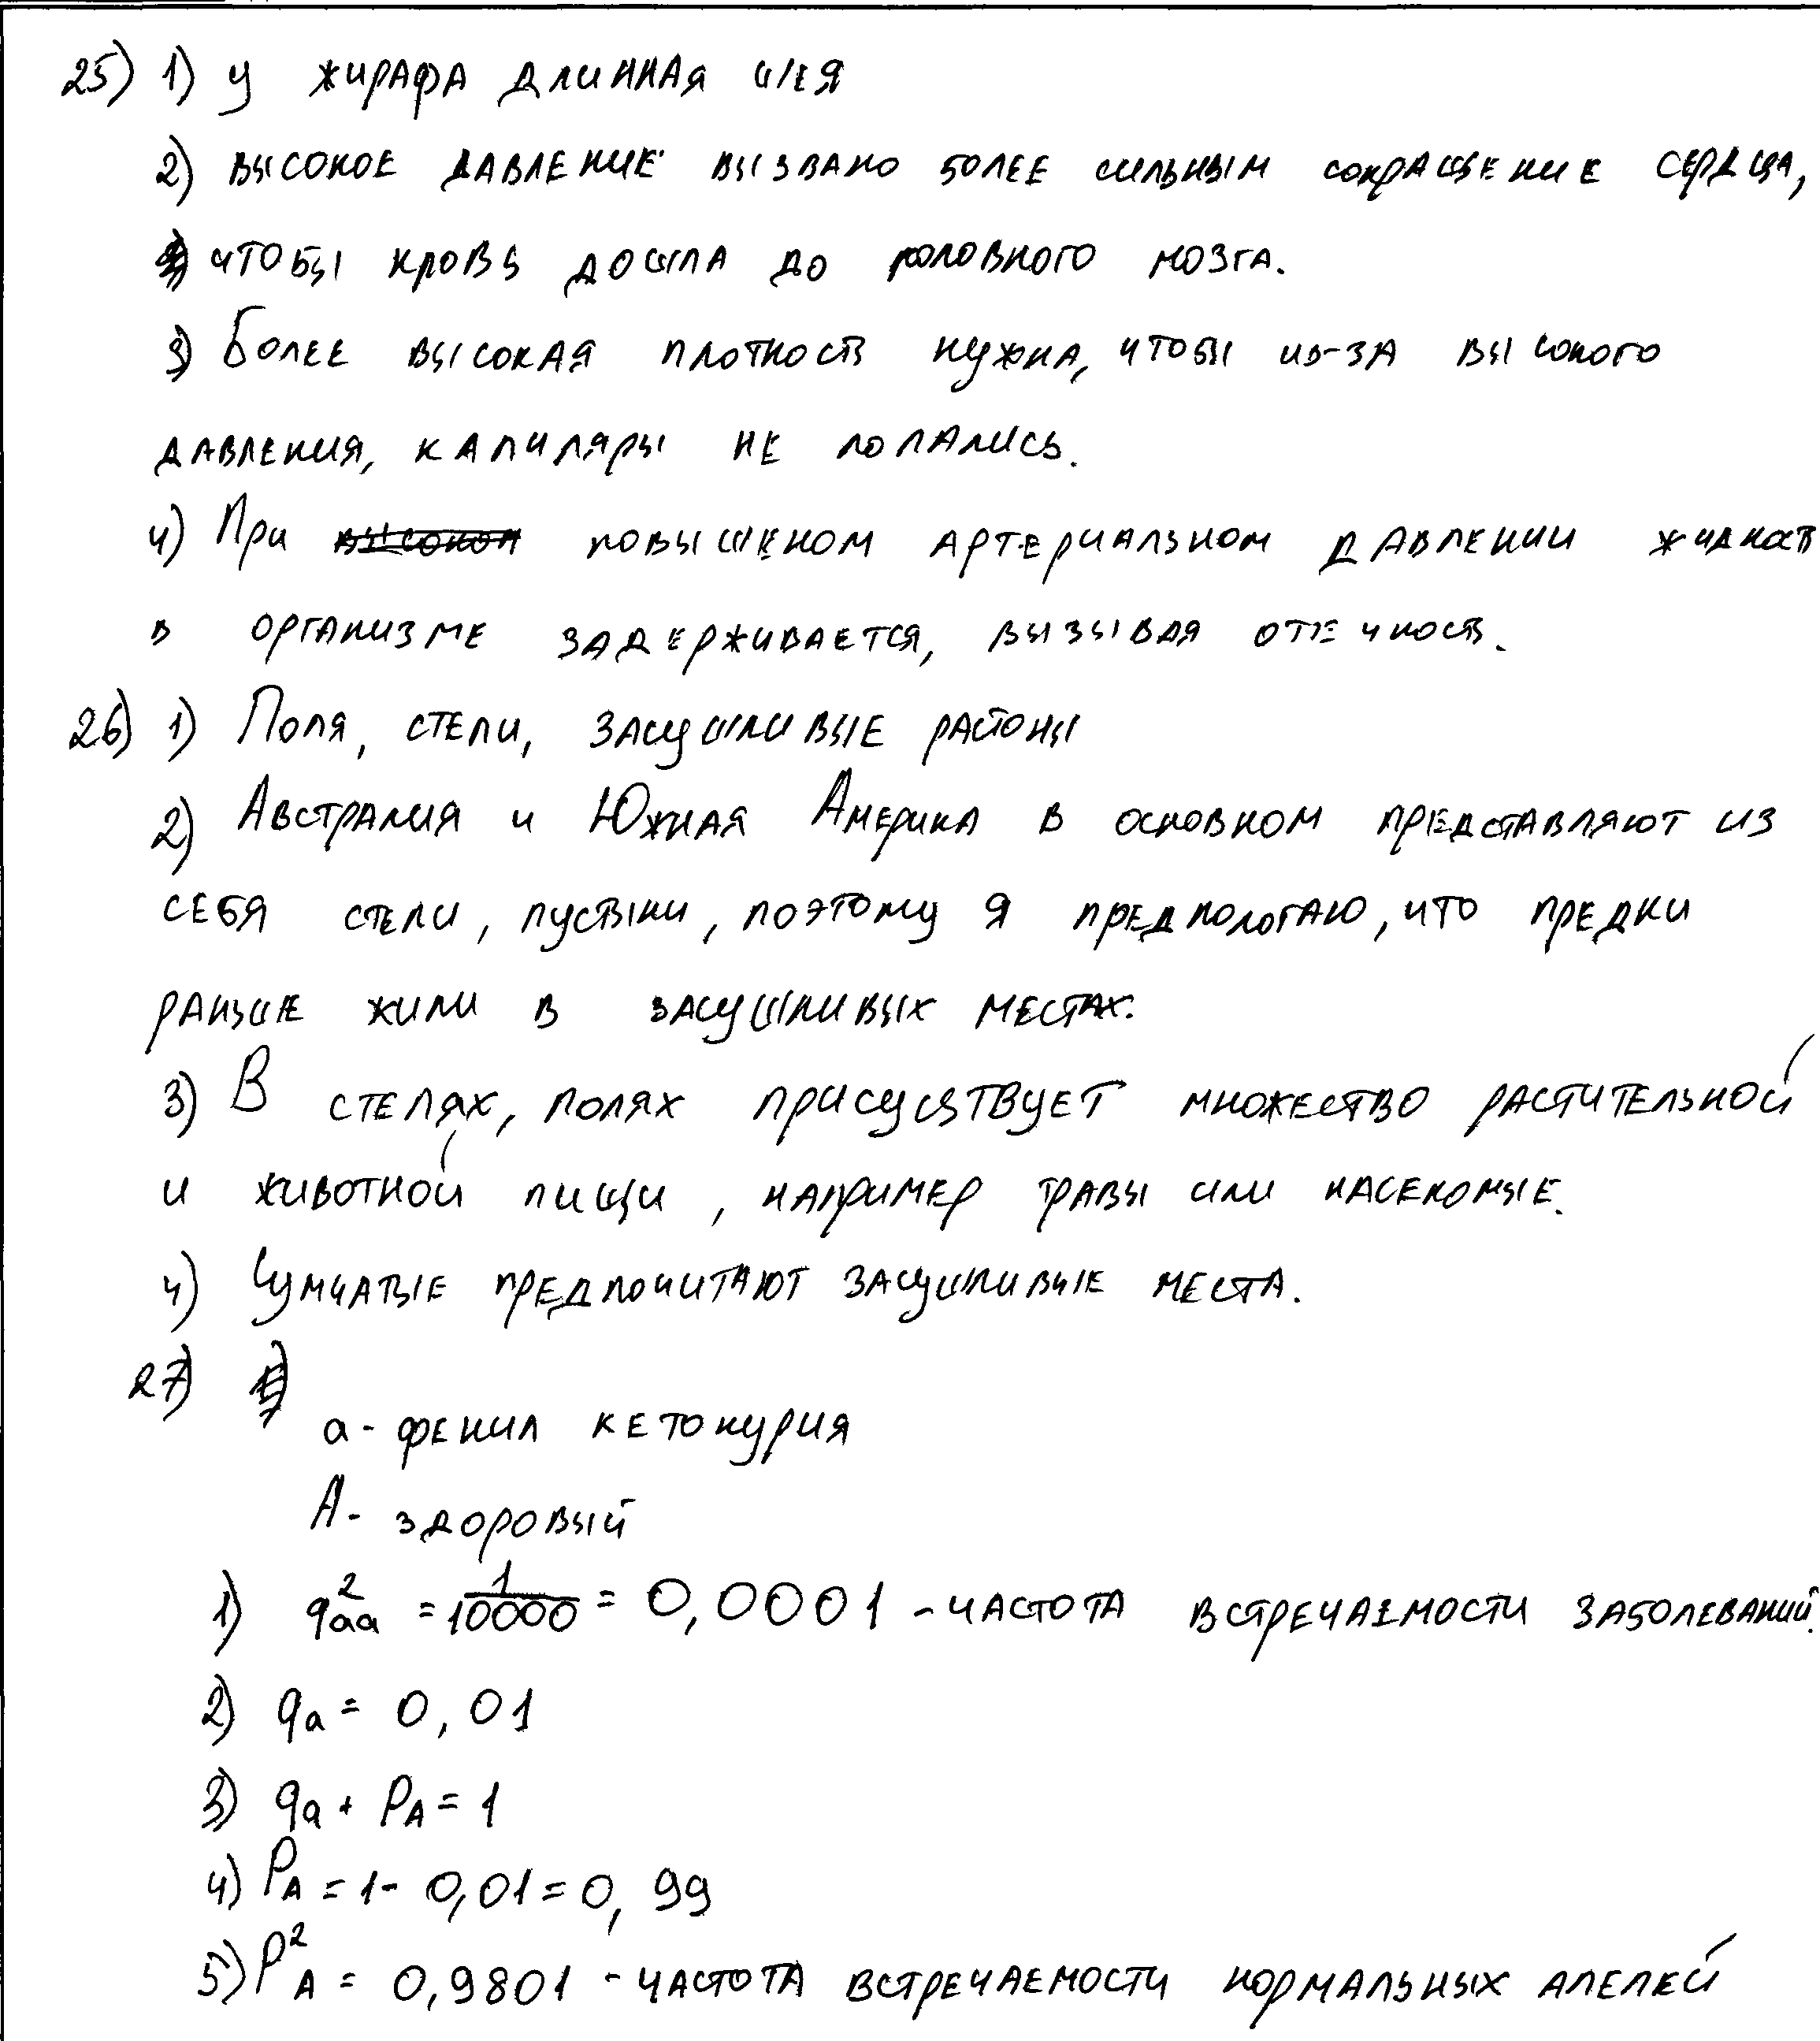 25) 1) у жирафа длинная шея
2) высокое давление вызвано более сильным сокращение сердца,
чтобы кровь дошла до головного мозга.
3) Более высокая плотность нужна, чтобы из-за высокого
давления, капиляры не лопались.
4) При высоком повышеном артериальном давлении жидкость
в организме задерживается, вызывая отечность.
26) 1) Поля, степи, засушливые районы
2) Австралия и Южная Америка в основном представляют из
себя степи, пустыни, поэтому я предпологаю, что предки
раньше жили в засушливых местах.
3) В степях, полях присуствует множество растительной
и животной пищи, например травы или насекомые.
4) Сумчатые предпочитают засушливые места.
27)
a - фенил кетонурия
А - здоровый
1) q²aa = 1/10000 = 0,0001 - частота встречаемости заболеваний.
2) qa = 0,01
3) qa + PA = 1
4) PA = 1 - 0,01 = 0,99
5) P²A = 0,9801 - частота встречаемости нормальных алелей